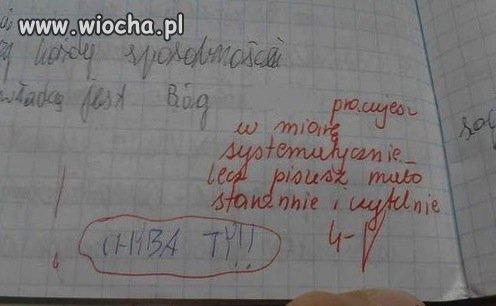 www.wiocha.pl
każdy sposobności
jest Bóg
pracujesz
w miarę
systematycznie
lecz piszesz mało
starannie i czytelnie
4-
CHYBA TY!!